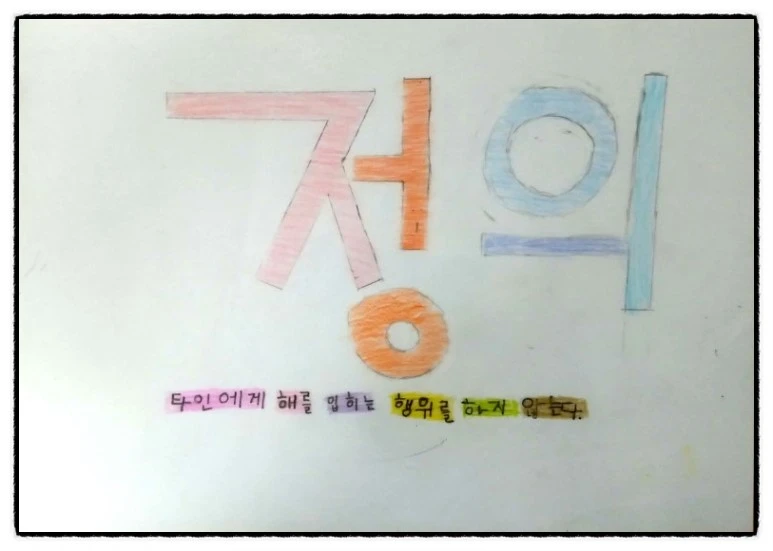 정의
타인에게 해를 입히는 행위를 하지 않는다.